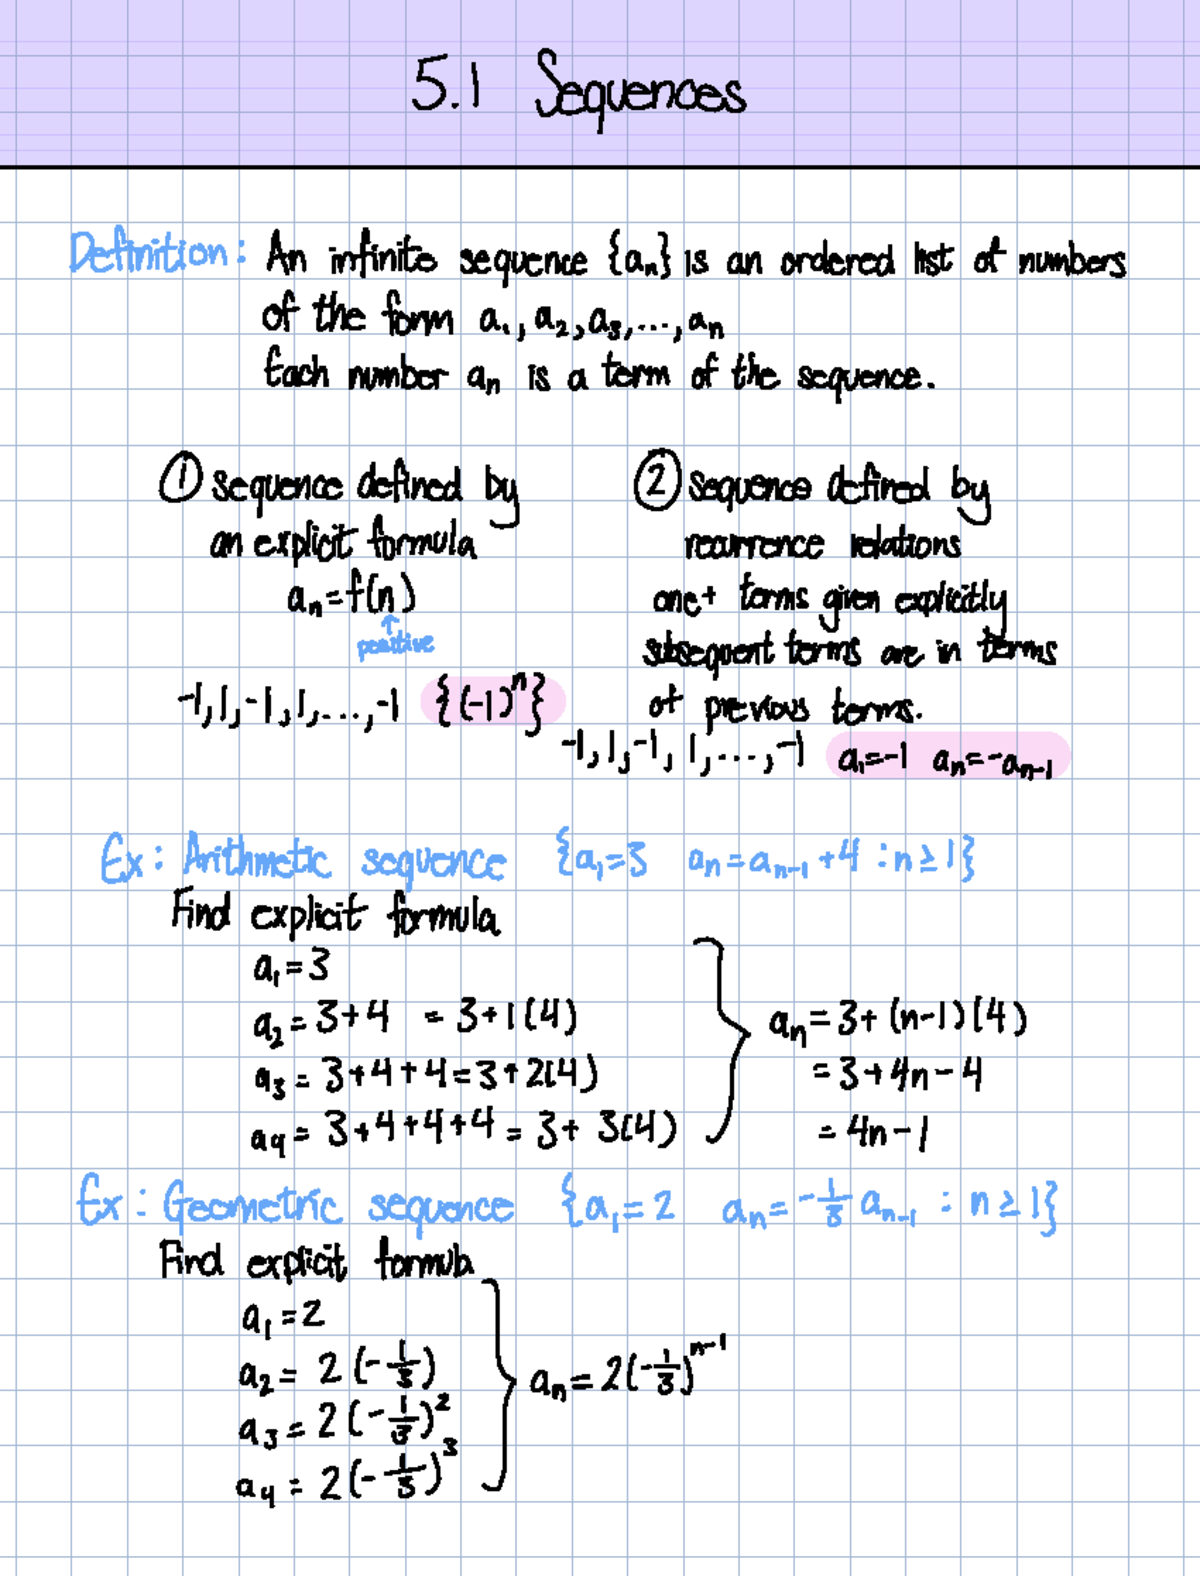 5.1 Sequences
Definition: An infinite sequence {aₙ} is an ordered list of numbers
of the form a₁, a₂, a₃, ..., aₙ
Each number aₙ is a term of the sequence.
① sequence defined by
an explicit formula
aₙ = f(n)
↑
positive
-1, 1, -1, 1, ..., -1 {(-1)ⁿ}
② sequence defined by
recurrence relations
one+ terms given explicitly
subsequent terms are in terms
of previous terms.
-1, 1, -1, 1, ..., -1 a₁=-1 aₙ=-aₙ₋₁
Ex: Arithmetic sequence {a₁=3 aₙ=aₙ₋₁+4 : n≥1}
Find explicit formula
a₁=3
a₂=3+4 = 3+1(4)
a₃ = 3+4+4=3+2(4)
a₄ = 3+4+4+4 = 3+ 3(4)
aₙ=3+(n-1)(4)
=3+4n-4
= 4n-1
Ex: Geometric sequence {a₁=2 aₙ=-1/3 aₙ₋₁ : n≥1}
Find explicit formula
a₁=2
a₂= 2(-1/3)
a₃=2(-1/3)²
a₄ = 2(-1/3)³
aₙ=2(-1/3)ⁿ⁻¹